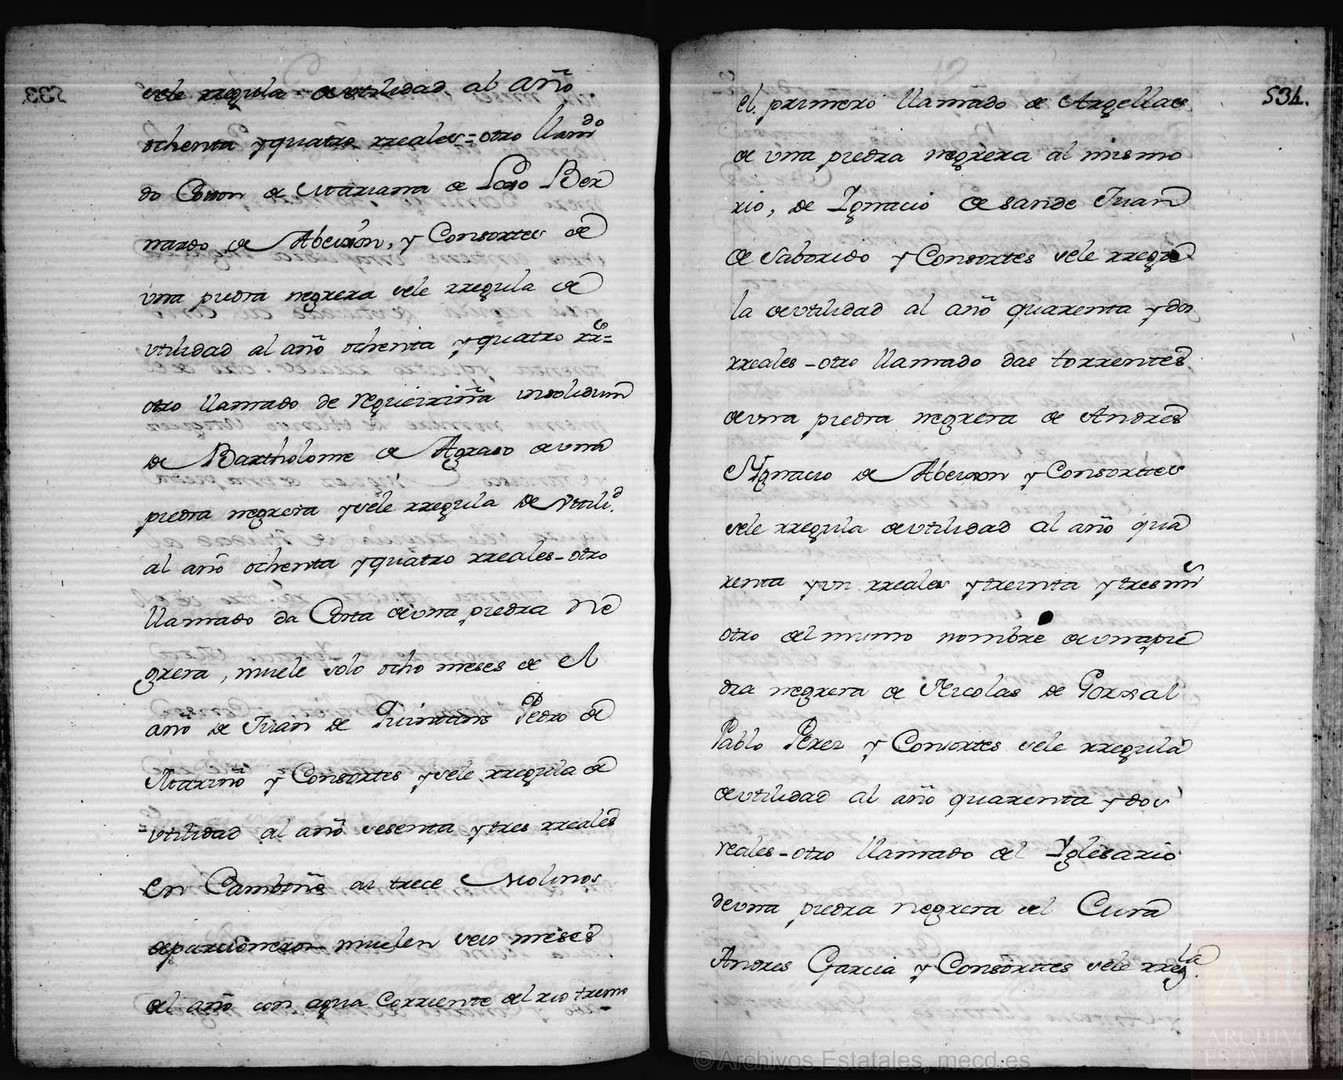 sele rregula de utilidad al año
ochenta y quatro rreales = otro llam.do
do Couon de Mariana de Lano Ber
nardo de Abeixon, y Consortes de
una piedra negrera sele rregula de
utilidad al año ochenta y quatro rr.s =
otro llamado de Regueiriña insolidum
de Bartholome de Agraso de una
piedra negrera y sele rregula de Utili.d
al año ochenta y quatro rreales - otro
llamado da Costa de una piedra ne
grera, muele solo ocho meses de el
año de Juan de Quintans Pedro de
Mariño y Consortes y sele rregula de
utilidad al año sesenta y tres rreales
en Camboño ai trece Molinos
de parcioneros muelen seis meses
del año con agua Corriente del rio tremo
534.
el primero llamado de Argellas
de una piedra negrera al mismo
rio, de Ignacio de sande Juan
de Saborido y Consortes sele rregu
la de utilidad al año quarenta y dos
rreales - otro llamado das torrentes
de una piedra negrera de Andres
Ygnacio de Abeixon y Consortes
sele rregula de utilidad al año qua
renta y un rreales y treinta y tres m.s
otro del mismo nombre de una pie
dra negrera de Nicolas de
Pablo Perez y Consortes sele rregula
de utilidad al año quarenta y dos
reales - otro llamado del Yglesario
de una piedra negrera del Cura
Andres Garcia y Consortes sele rreg.la
© Archivos Estatales, mecd.es
ARCHIVOS
ESTATALES